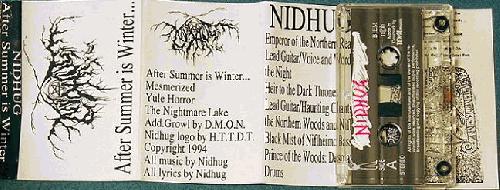 NIDHUG
After Summer is Winter
After Summer is Winter...
After Summer is Winter...
Mesmerized
Yule Horror
The Nightmare Lake
Add.Growl by D.M.O.N.
Nidhug logo by H.T.T.D.T.
Copyright 1994
All music by Nidhug
All lyrics by Nidhug
NIDHUG
Emperor of the Northern Rea
Lead Guitar/Voice and
the Night
Heir to the Dark Throne
Lead Guitar/Haunting Chants
the Northern Woods and
Black Mist of Niflheim: Bass
Prince of the Woods:
Drums
NIDHUG
SIDE A
STEREO